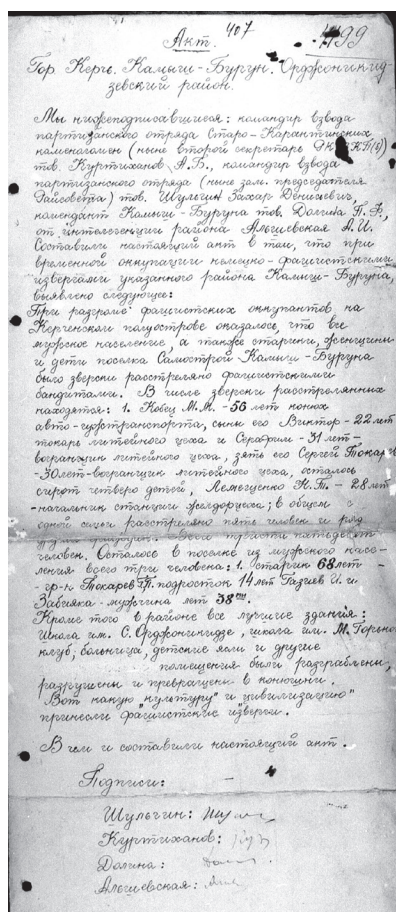 407
Акт.
Гор. Керчь. Камыш-Бурун. Орджоникид-
зевский район.
Мы нижеподписавшиеся: командир взвода
партизанского отряда Старо-Карантинских
каменоломен (ныне второй секретарь РК ВКП(б))
тов. Куртиханов А.Б., командир взвода
партизанского отряда (ныне зам. председателя
Райсовета) тов. Шульгин Захар Денисевич,
комендант Камыш-Буруна тов. Долина П.Ф.,
от интелегенции района Альшевская А.И.
Составили настоящий акт в том, что при
временной оккупации немецко-фашистскими
извергами указанного района Камыш-Буруна,
выявлено следующее:
При разгроме фашистских оккупантов на
Керченском полуострове оказалось, что все
мужское население, а также старики, женщины
и дети поселка Самострой-Камыш-Буруна
было зверски расстреляно фашистскими
бандитами. В числе зверски расстрелянных
находятся: 1. Кобец М.М. -56 лет конюх
авто-гужтранспорта, сыны его Виктор-22 лет
токарь литейного цеха и Серафим-31 лет-
вогранщик литейного цеха, зять его Сергей Токарь
-30 лет-вогранщик литейного цеха, осталось
сирот четверо детей, Лемещенко Н.Т. - 28 лет
-начальник станции желдорцеха; в общем с
одной семьи расстреляно пять человек и ряд
других
человек. Осталось в поселке из мужского насе-
ления всего три человека: 1. Старик 68 лет -
-гр-н Токарев подросток 14 лет Газиев И. и
Забияка-мужчина лет 38
Кроме того в районе все лучшие здания:
школа им. С. Орджоникидзе, школа им. М. Горько
клуб, больница, детские ясли и другие
помещения были разграблены,
разрушены и превращены в конюшни.
Вот какую "культуру" и "цивилизацию"
принесли фашистские изверги.
В чем и составили настоящий акт.
Подписи: -
Шульгин:
Куртиханов:
Долина:
Альшевская: